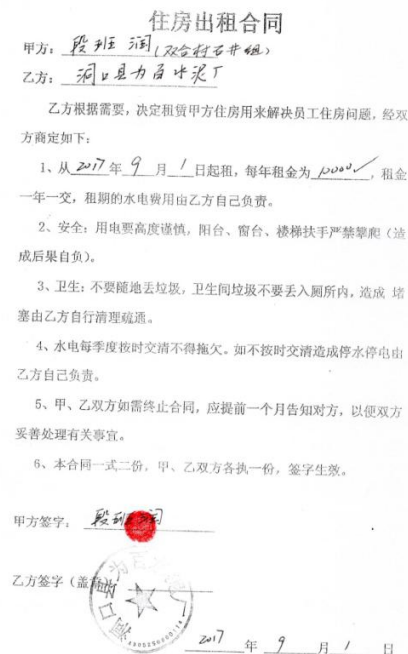 住房出租合同
甲方：段班润(双合村石井组)
乙方：洞口县为百水泥厂
乙方根据需要，决定租赁甲方住房用来解决员工住房问题，经双
方商定如下：
1、从2017年9月1日起租，每年租金为10000，租金
一年一交，租期的水电费用由乙方自己负责。
2、安全：用电要高度谨慎，阳台、窗台、楼梯扶手严禁攀爬（造
成后果自负）。
3、卫生：不要随地丢垃圾，卫生间垃圾不要丢入厕所内，造成 堵
塞由乙方自行清理疏通。
4、水电每季度按时交清不得拖欠。如不按时交清造成停水停电由
乙方自己负责。
5、甲、乙双方如需终止合同，应提前一个月告知对方，以便双方
妥善处理有关事宜。
6、本合同一式二份，甲、乙双方各执一份，签字生效。
甲方签字：段班润
乙方签字（盖
洞口县为百水泥厂
2017年9月1日